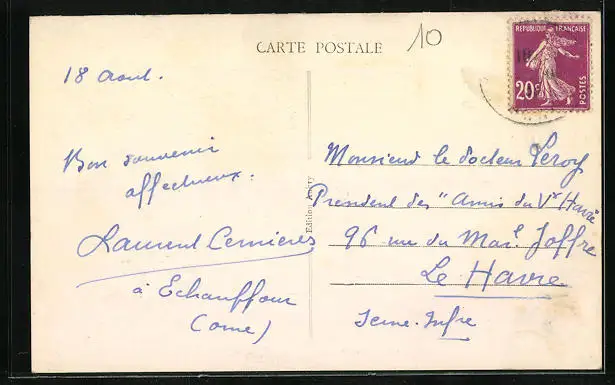 CARTE POSTALE
10
REPUBLIQUE FRANÇAISE
20c
POSTES
18 Aout.
Bon souvenir
affectueux.
Laurent Cernières
à Echauffour
(Orne)
Monsieur le docteur Leroy
President des "Amis du Vx Havre"
96 rue du Mal. Joffre
Le Havre
Seine-Infre
Edition